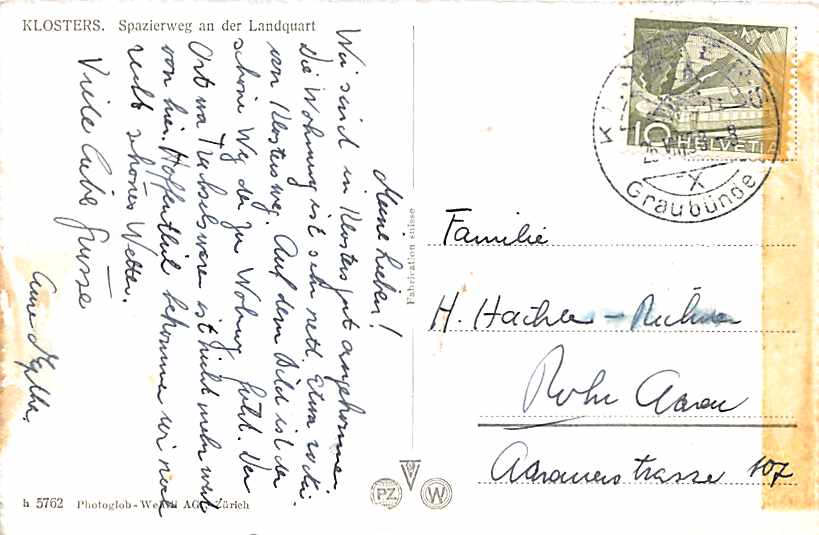 KLOSTERS. Spazierweg an der Landquart
Meine Lieben!
Wir sind in Klosters gut angekommen.
Die Wohnung ist sehr nett. Etwa
von Klosters weg. Auf dem Bild ist der
schöne Weg der zur Wohng. führt. Der
Ort wo ist nicht mehr weit
von hier. Hoffentlich bekommen wir noch
recht schönes Wetter.
Viele liebe Grüsse
Fabrication suisse
HELVETIA
10
Graubünden
Familie
H. Hächler - 
Rohr Aarau
Aarauerstrasse 107
h 5762 Photoglob-Wehrli AG. Zürich
PZ W